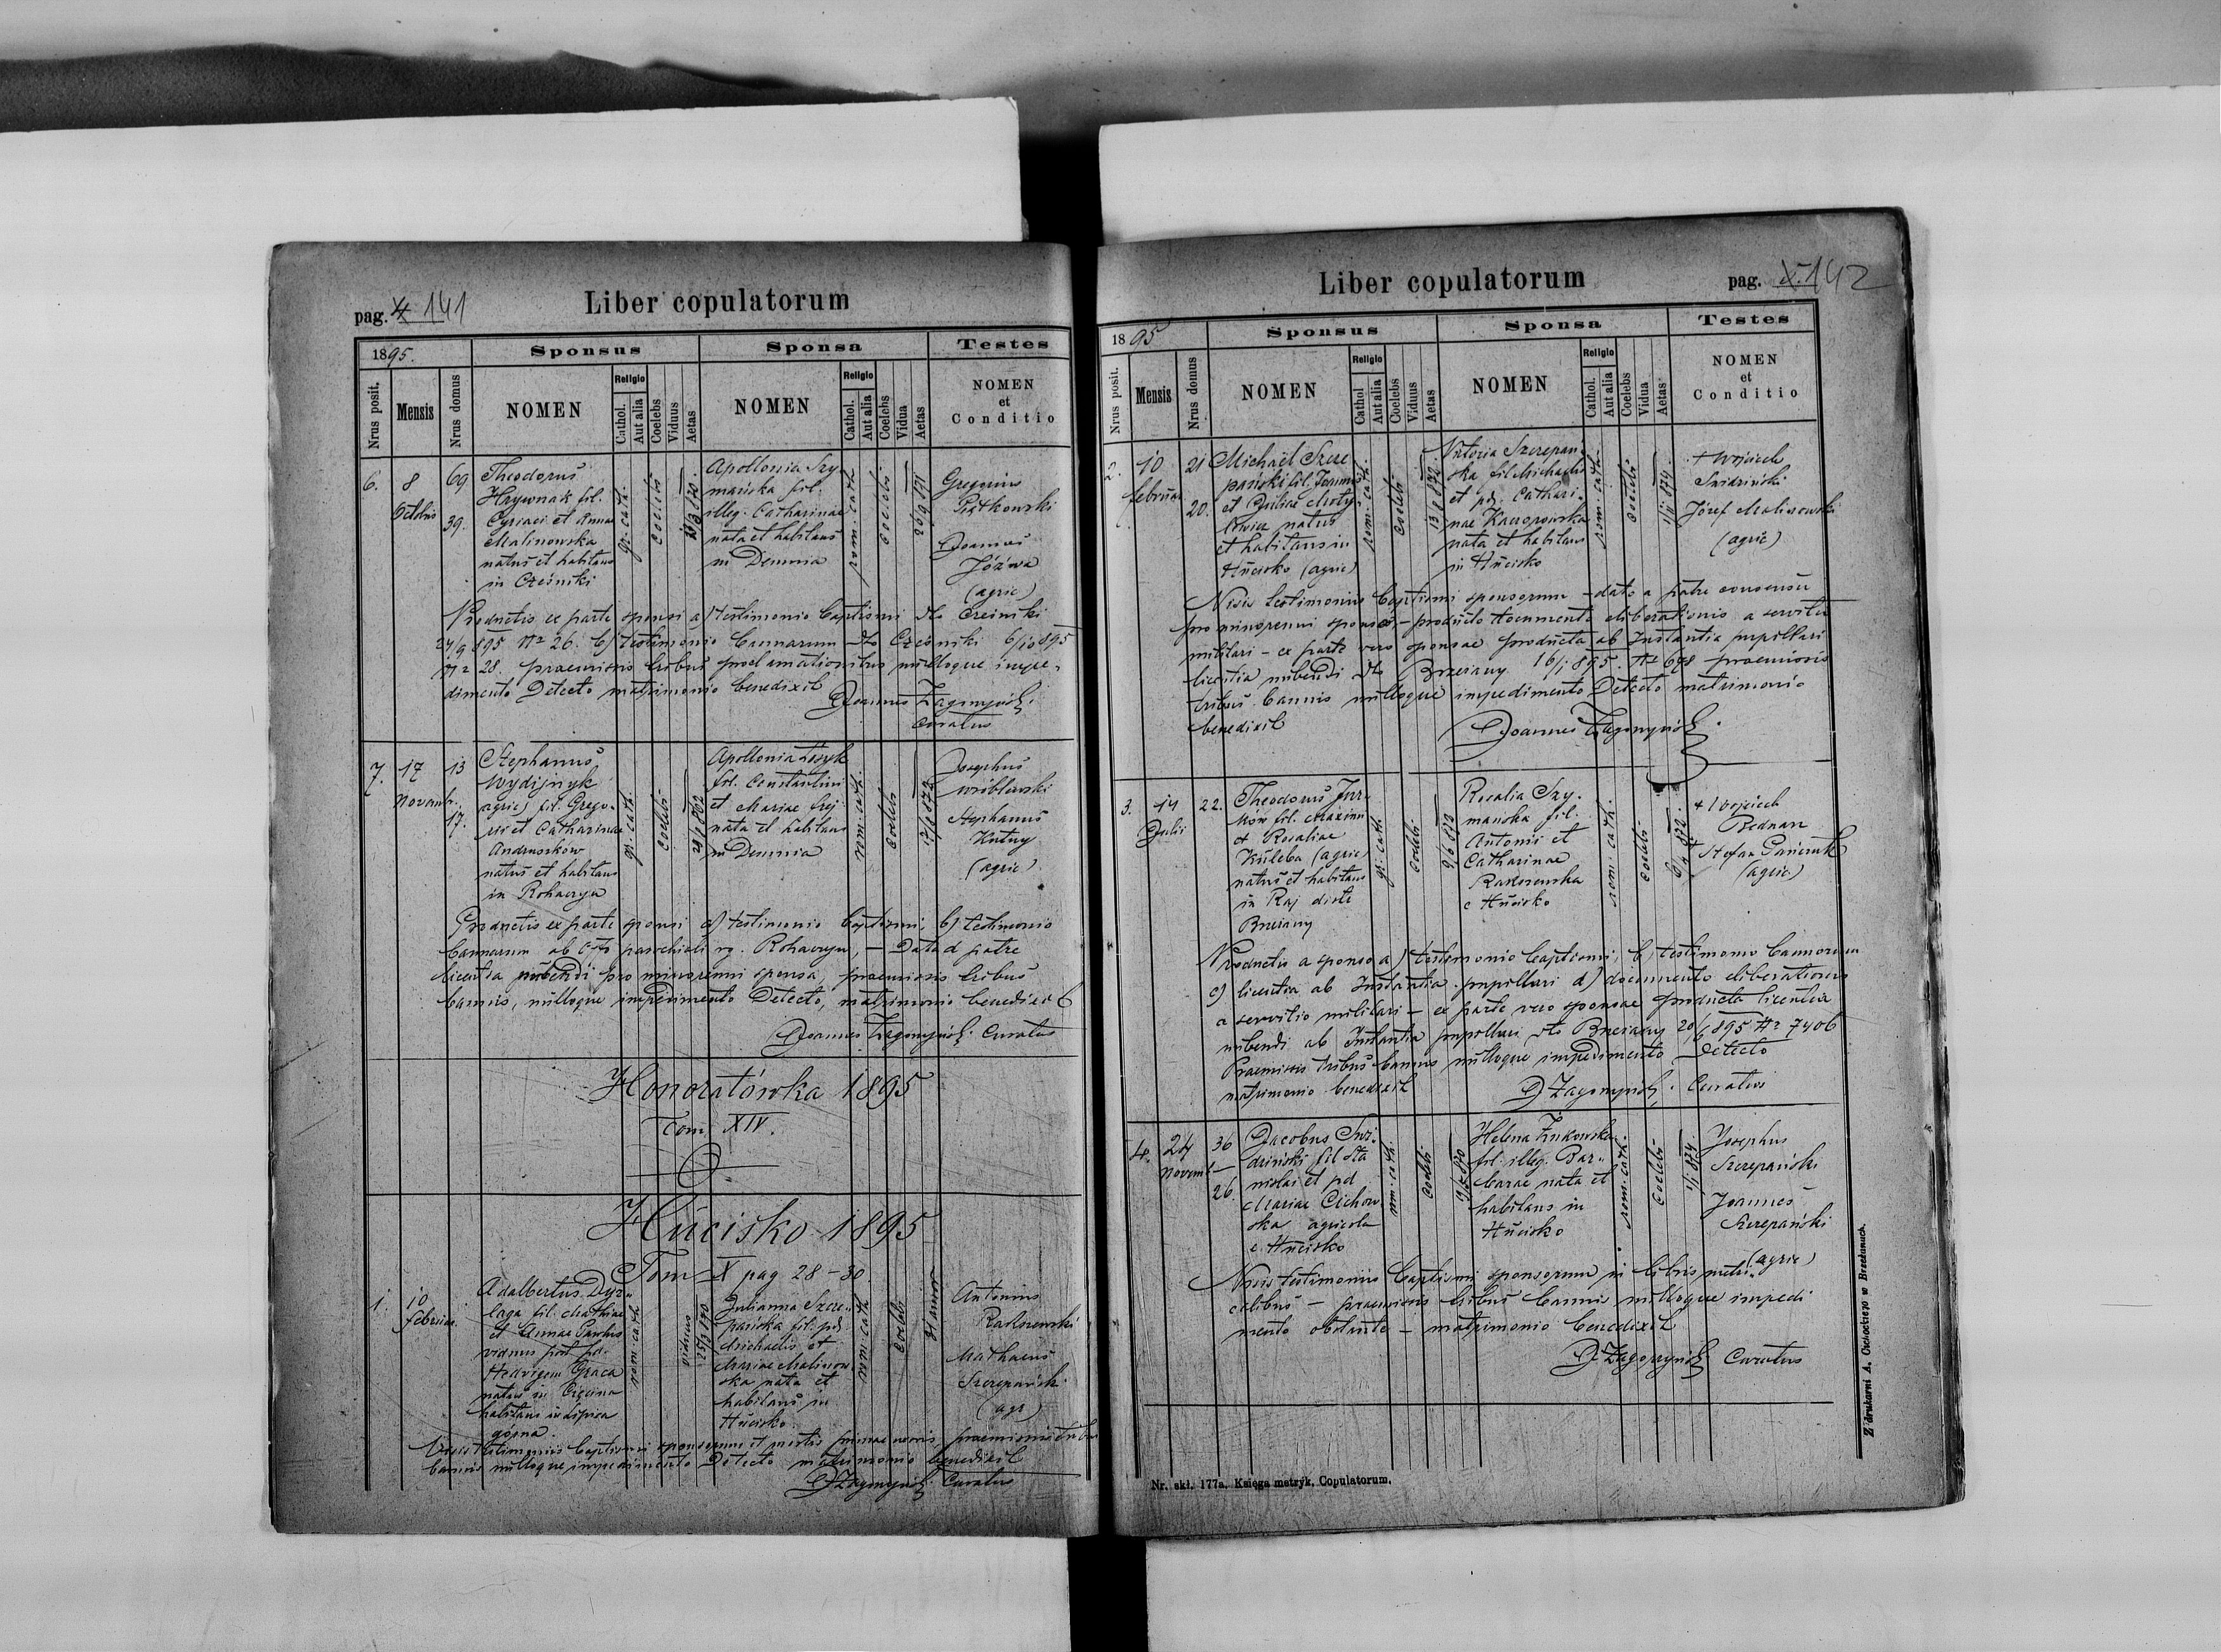 pag. 4 141
Liber copulatorum
1895.
Sponsus
Sponsa
Testes
Nrus posit.
Mensis
Nrus domus
NOMEN
Religio
Cathol.
Aut alia
Coelebs
Viduus
Aetas
NOMEN
Religio
Cathol.
Aut alia
Coelebs
Vidua
Aetas
NOMEN
et
Conditio
6.
8
Octobris
69
39.
Theodorus
Hrywnak fil.
Cyriaci et Annae
Malinowska
natus et habitans
in Cześniki
gr. cath.
Coelebs
Apollonia Szy-
mańska fil.
illeg. Catharinae
nata et habitans
in Demnia
rom. cath.
Coelebs
26/9 871
Gregorius
Piątkowski
Joannes
Józwa
(agric)
Productis ex parte sponsi a) testimonio baptismi dto Cześniki
27/9 895 No 26. b) testimonio bannorum dto Cześniki 6/10 895
No 28. praemissis tribus proclamationibus nulloque impe-
dimento detecto matrimonio benedixit
Joannes Zagórzyński
Curatus
7.
17
Novemb.
13
17.
Stephanus
Wydijnyk
agric) fil. Grego-
rii et Catharinae
Andruszków
natus et habitans
in Rohaczyn
gr. cath.
Coelebs
Apollonia
fil. Constantini
et Mariae
nata et habitans
in Demnia
rom. cath.
Coelebs
Josephus
Wróblewski
Stephanus
Kutny
(agric)
Productis ex parte sponsi a) testimonio baptismi, b) testimonio
bannorum ab offo parochiali rg. Rohaczyn, - data a patre
licentia nubendi pro minorenni sponsa, praemissis tribus
bannis, nulloque impedimento detecto, matrimonio benedixit
Joannes Zagórzyński Curatus
Honoratówka 1895
Tom XIV.
0.
Hucisko 1895
Tom X pag 28-30.
1.
10
Februar.
Adalbertus Dyr-
laga fil. Mathiae
et Annae
viduus post pd.
Hedvigem Graca
natus in
habitans in Lipica
górna.
rom. cath.
viduus
Julianna Szcze-
pańska fil. pd
Michaelis et
Mariae Malinow
ska nata et
habitans in
Hucisko
rom. cath.
Coelebs
Antonius
Rakszewski
Mathaeus
Szczepański
(agr)
Visis testimoniis baptismi sponsorum et mortis primae uxoris, praemissis tribus
bannis nulloque impedimento detecto matrimonio benedixit
J Zagórzyński Curatus
Liber copulatorum
pag. 142
1895
Sponsus
Sponsa
Testes
Nrus posit.
Mensis
Nrus domus
NOMEN
Religio
Cathol
Aut alia
Coelebs
Viduus
Aetas
NOMEN
Religio
Cathol.
Aut alia
Coelebs
Vidua
Aetas
NOMEN
et
Conditio
2.
10
Februar
21
20.
Michaël Szcze
pański fil. Joannis
et Juliae
natus
et habitans in
Hucisko (agric)
rom. cath.
Coelebs
Victoria Szczepań-
ska fil Michaelis
et pd. Cathari-
nae
nata et habitans
in Hucisko
rom. cath.
Coelebs
+ Wojciech
Świdziński
Józef Malinowski
(agric)
Visis testimoniis baptismi sponsorum - dato a patre consensu
pro minorenni sponso - producto documento eliberationis a servitio
militari - ex parte vero sponsae producta ab Instantia pupillari
licentia nubendi dto Brzeżany 16/1 895. No 698 praemissis
tribus bannis nulloque impedimento detecto matrimonio
benedixit
Joannes Zagórzyński.
3.
14
Julii
22.
Theodorus Jur-
ków fil. Maximi
et Rosaliae
Kuleba (agric)
natus et habitans
in Raj distr
Brzeżany
gr. cath.
Coelebs
9/6 873
Rosalia Szy-
mańska fil.
Antonii et
Catharinae
Rakszewska
e Hucisko
rom. cath.
Coelebs
+ Wojciech
Bednarz
+ Stefan
(agric)
Productis a sponso a) testimonio baptismi, b) testimonio bannorum
c) licentia ab Instantia pupillari d) documento eliberationis
a servitio militari - ex parte vero sponsae producta licentia
nubendi ab Instantia pupillari dto Brzeżany 20/6 895 No 7406
Praemissis tribus bannis nulloque impedimento detecto
matrimonio benedixit
J Zagórzyński. Curatus
4.
24
Novemb
36
26.
Jacobus Świ-
dziński fil Sta
nislai et pd
Mariae Cichow
ska agricola
e Hucisko
rom. cath.
Coelebs
Helena Żukowska
fil. illeg. Bar-
barae nata et
habitans in
Hucisko
rom. cath.
Coelebs
Josephus
Szczepański
Joannes
Szczepański
(agric)
Visis testimoniis baptismi sponsorum in libris metri-
calibus - praemissis tribus bannis nulloque impedi
mento obstante - matrimonio benedixit
J Zagórzyński Curatus
Nr. skł. 177a. Księga metryk. Copulatorum.
Z drukarni A. Ochoctiego w Brzeżanach.